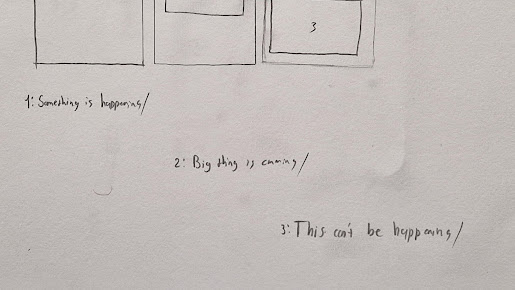 3
1: Something is happening/
2: Big thing is comming/
3: This can't be happening/